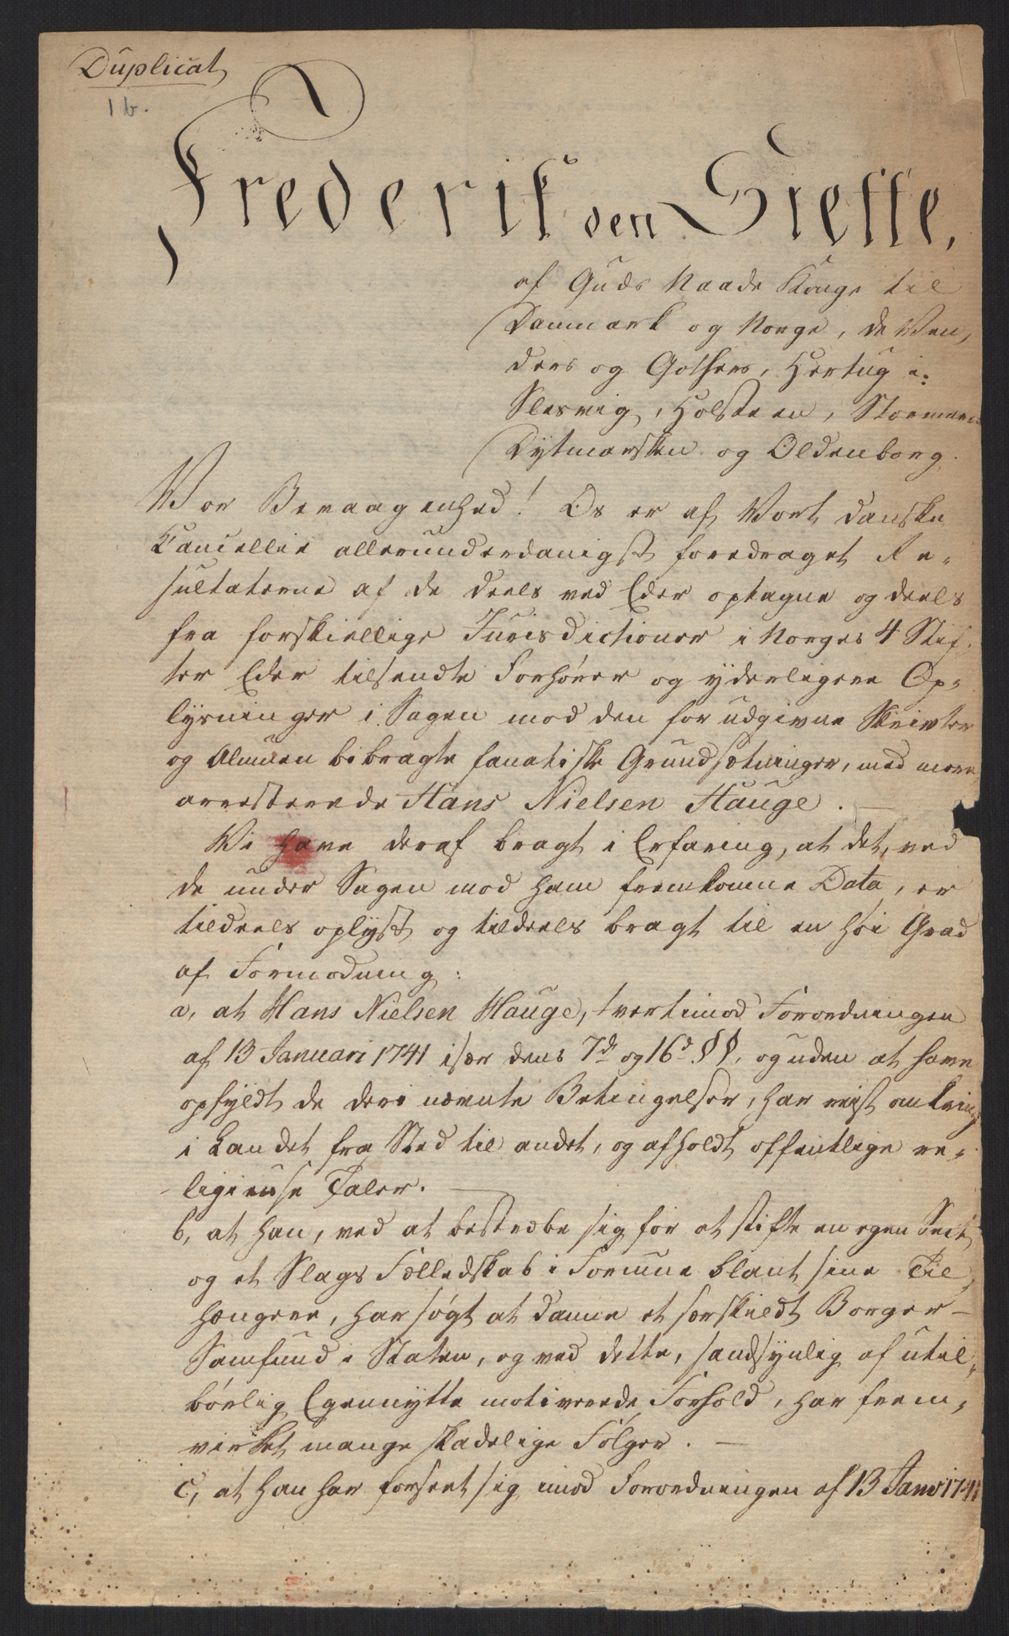 Duplicat
1 b.
Frederik den Siette,
af Guds Naade Konge til
Danmark og Norge, de Ven,
ders og Gothers, Hertug i:
Slesvig, Holsteen, Stormarn
Dytmarsken og Oldenborg.
Vor Bevaagenhed! Os er af Vort danske
Cancellie allerunderdanigst foredraget Re,
sultaterne af de deels ved Eder optagne og deels
fra forskiellige Jurisdictioner i Norges 4 Stif,
ter Eder tilsendte Forhører og yderligere Op,
lysninger i Sagen mod den for udgivne Skrivter
og Almuen bibragte fanatiske Grundsætninger, med mere
arresterede Hans Nielsen Hauge.
Vi have deraf bragt i Erfaring, at det, ved
de under Sagen mod ham fremkomne Data, er
tildeels oplyst og tildeels bragt til en høi Grad
af Formodning:
a, at Hans Nielsen Hauge, tvertimod Forordningen
af 13 Januari 1741 især dens 7de og 16de §§, og uden at have
opfyldt de deri nævnte Betingelser, har reist omkring
i Landet fra Sted til andet, og afholdt offentlige re,
ligieuse Taler.
b, at han, ved at bestræbe sig for at stifte en egen Sect
og et Slags Fælledskab i Formue blant sine Til,
hængere, har søgt at danne et særskildt Borger-
Samfund i Staten, og ved dette, sandsynlig af util,
børlig Egennytte motiverede Forhold, har frem,
virket mange skadelige Følger.
c, at han har forseet sig imod Forordningen af 13 Janv 1741